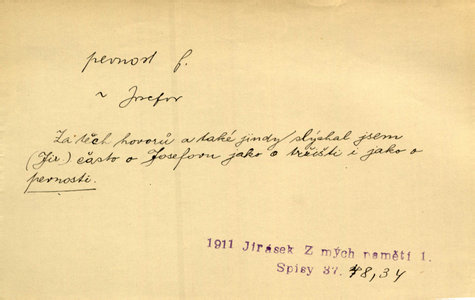 pevnost f.
~ Josefov
Za těch hovorů a také jindy slýchal jsem
(Jir.) často o Josefovu jako o tržišti i jako o
pevnosti.
1911 Jirásek Z mých pamětí 1.
Spisy 37. 48,34